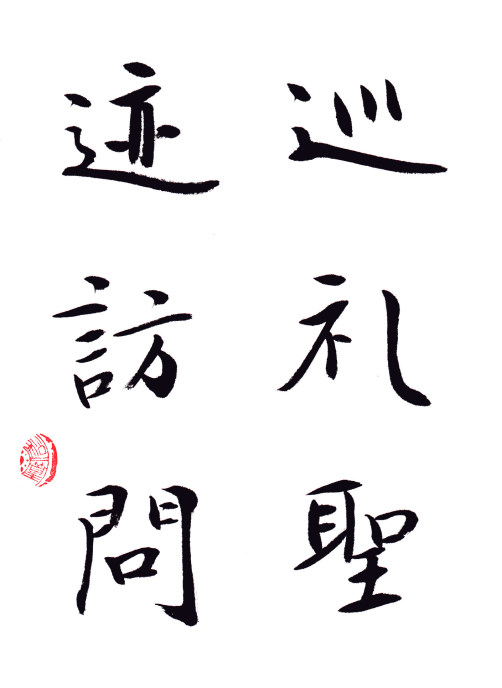 巡礼聖
迹訪問